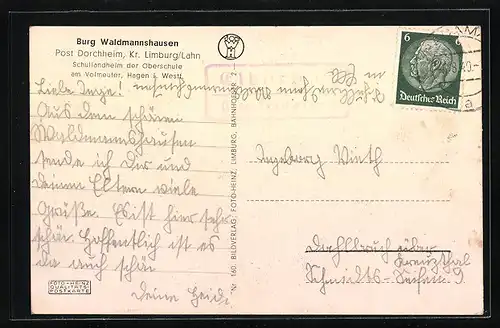 Burg Waldmannshausen
Post Dorchheim, Kr. Limburg/Lahn
Schullandheim der Oberschule
am Volmeufer, Hagen i. Westf.
Liebe Inge!
Aus dem schönen
Waldmannshausen
sende ich Dir und
deinen Eltern viele
Grüße. Es ist hier sehr
schön. Hoffentlich ist es
da auch schön
Deine Heidi.
FOTO-HEINZ
QUALITÄTS-
POSTKARTE
Nr. 160 BILDVERLAG: FOTO-HEINZ, LIMBURG, BAHNHOFSTR. 2
6
6
Deutsches Reich
a
Ingeborg Vieth
Dahlbruch über
Kreuzthal